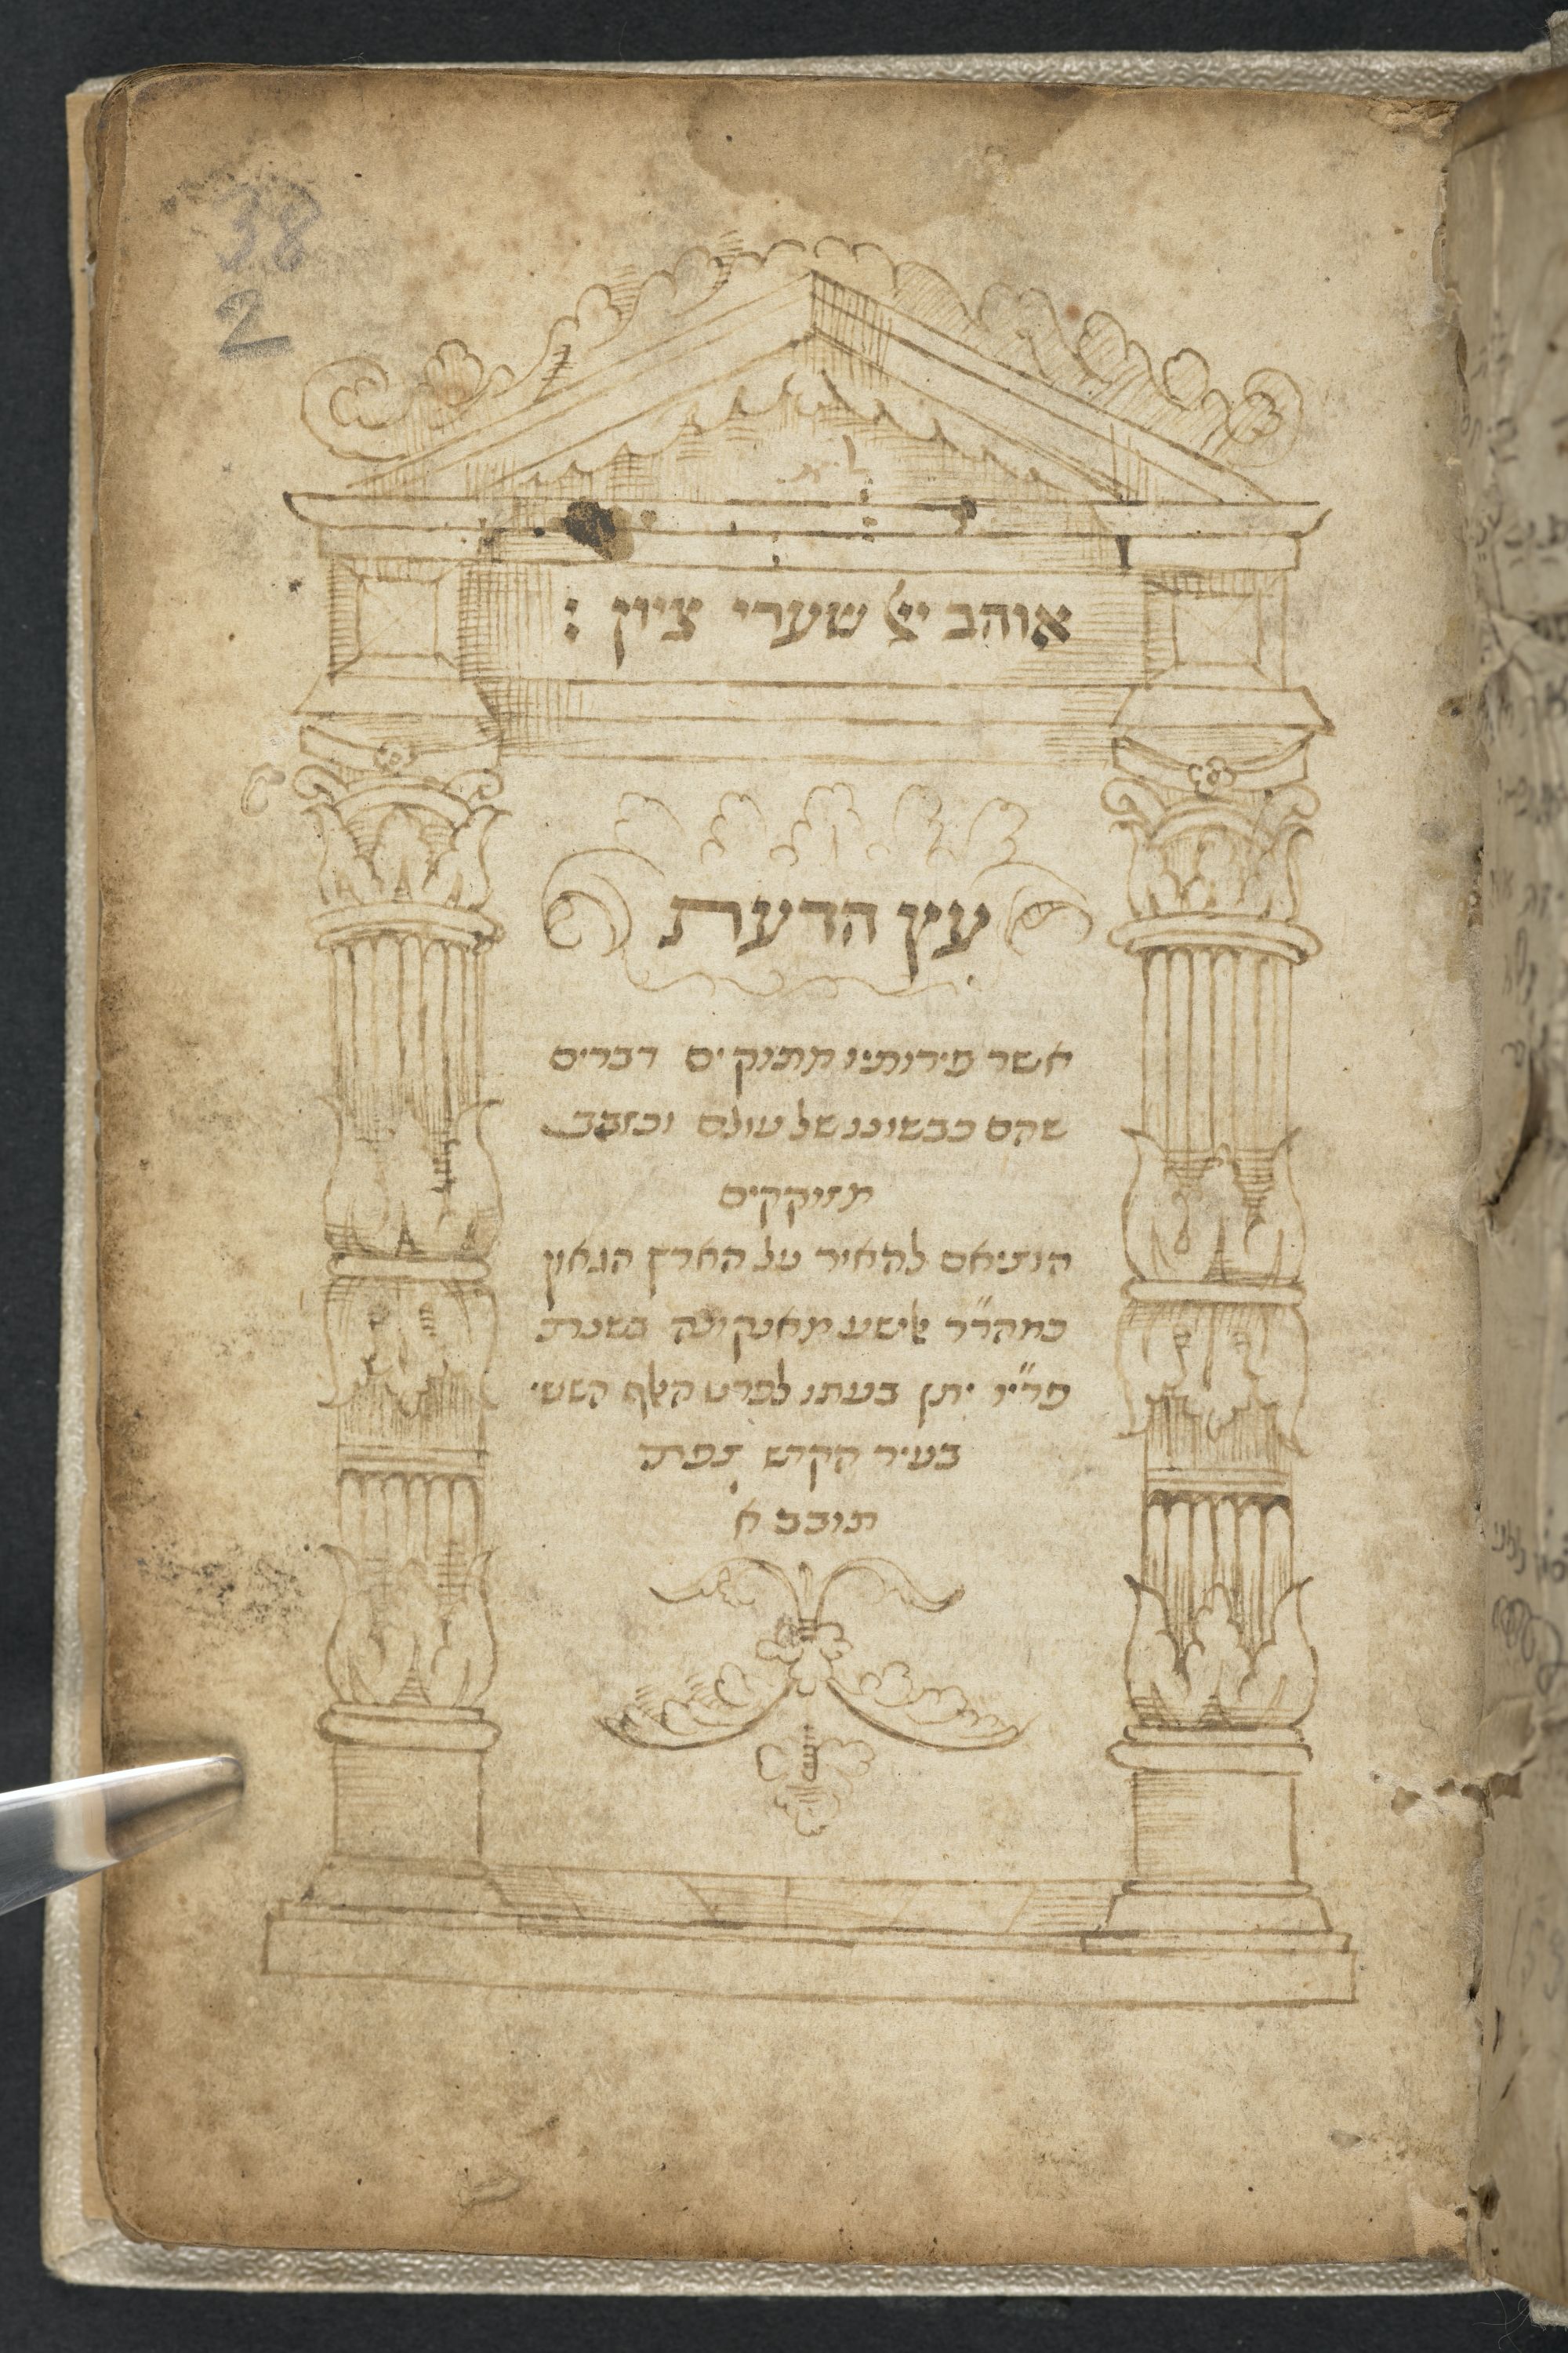 38
2
אוהב יי' שערי ציון :
עץ הדעת
אשר פירותיו מתוקים דברים
שהם כבשונו של עולם וכזהב
מזוקקים
הוציאם להאיר על הארץ הגאון
כמהר"ר אלישע מאנקונה בשנת
פרי"ו יתן בעתו לפרט האלף הששי
בעיר הקדש צפת
תובב א